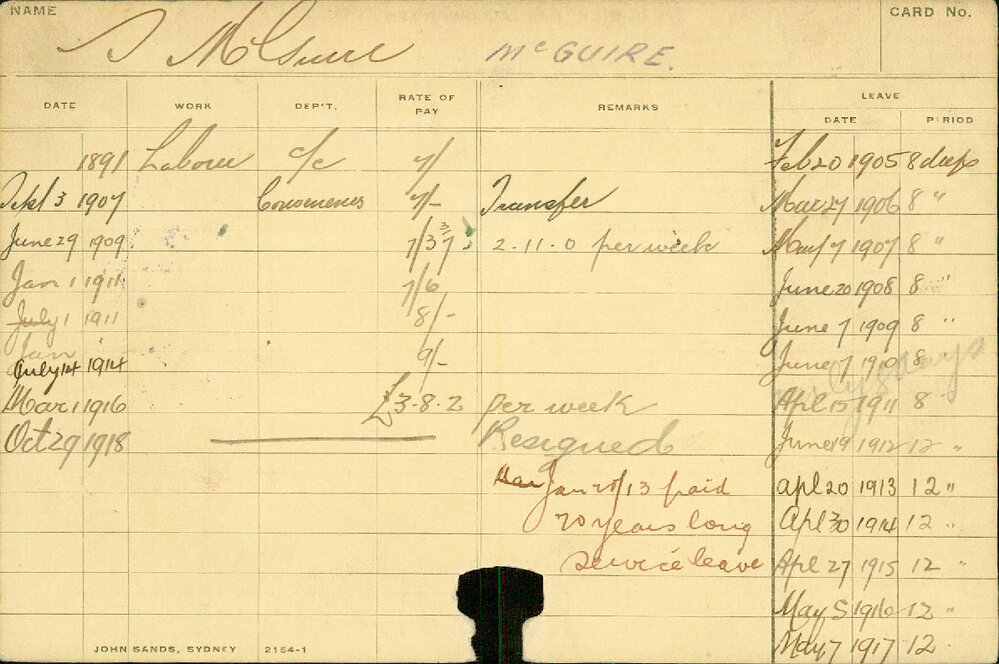 NAME
CARD No.
McGuire McGUIRE.
DATE WORK DEP'T. RATE OF PAY REMARKS LEAVE
DATE PERIOD
1891 Laborer c/c 7/ Feb 20 1905 8 days
Sept 3 1907 7/- Transfer Mar 27 1906 8 "
June 29 1909 2.11.0 per week May 7 1907 8 "
Jan 1 1911 7/6 June 20 1908 8 "
July 1 1911 8/- June 7 1909 8 "
Jan
July 14 1914 9/- June 7 1910 8
Mar 1 1916 £3.8.2 per week Apl 15 1911 8
Oct 29 1918 Resigned June 19 1912 12 "
Jan /13 paid Apl 20 1913 12 "
20 years long Apl 30 1914 12 "
service leave Apl 27 1915 12 "
May 5 1916 12 "
May 7 1917 12
JOHN SANDS, SYDNEY 2154-1